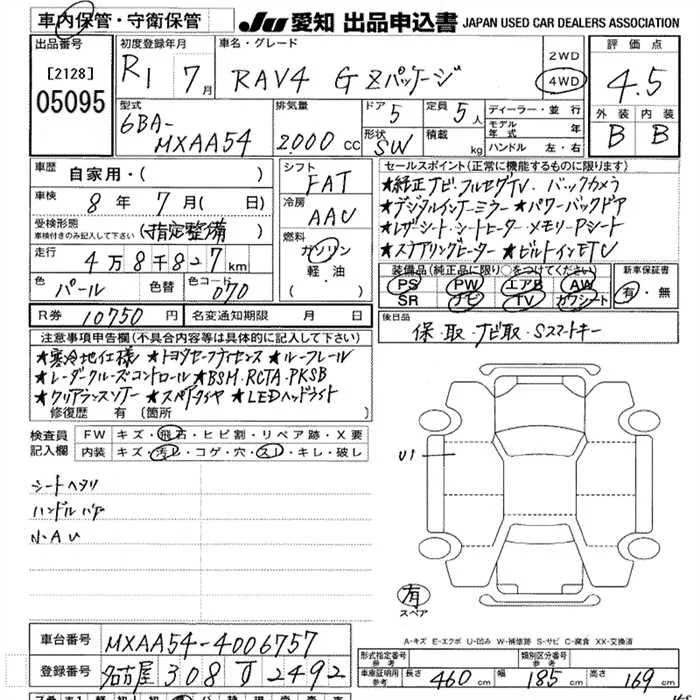 車内保管・守衛保管
JU 愛知 出品申込書 JAPAN USED CAR DEALERS ASSOCIATION
出品番号
[2128]
05095
初度登録年月
R1 7月
車名・グレード
RAV4 G Zパッケージ
2WD
4WD
評価点
4.5
外装 内装
B B
型式
6BA-
MXAA54
排気量
2000 cc
ドア 5
形状 SW
定員 5人
積載 kg
ディーラー・並行
モデル年式 年
ハンドル 左・右
車歴
自家用・( )
車検
8年 7月( 日)
受検形態
車検付きのみ記入して下さい
(指定整備)
走行
4万8千827km
色
パール
色替
色コード
070
R券 10750円 名変通期限 月 日
シフト
FAT
冷房
AAC
燃料
ガソリン
軽油
( )
セールスポイント(正常に機能するものに限ります)
★純正ナビ・フルセグTV・バックカメラ
★デジタルインナーミラー★パワーバックドア
★レザーシート・シートヒーター・メモリーPシート
★ステアリングヒーター ★ビルトインETC
装備品(純正品に限り○をつけてください)
PS PW エアB AW
SR ナビ TV カワシート
新車保証書
有・無
後日品
保・取・ナビ取・Sスマートキー
注意事項申告欄(不具合内容等は具体的に記入して下さい)
★寒冷地仕様 ★トヨタセーフティセンス ★ルーフレール
★レーダークルーズコントロール ★BSM.RCTA.PKSB
★クリアランスソナー ★スペアタイヤ ★LEDヘッドライト
修復歴 有 (箇所
検査員
記入欄
FW キズ・飛石・ヒビ割・リペア跡・X要
内装 キズ・汚レ・コゲ・穴・スレ・キレ・破レ
シートヘタリ
ハンドル
小AU
U1
有
スペア
A-キズ E-エクボ U-凹み W-補修跡 S-サビ C-腐食 XX-交換済
車台番号 MXAA54-4006757
登録番号 名古屋 308 2492
形式指定番号
参考
類別区分番号
参考
車庫証明用
参考
長さ 460cm 幅 185cm 高さ 169cm